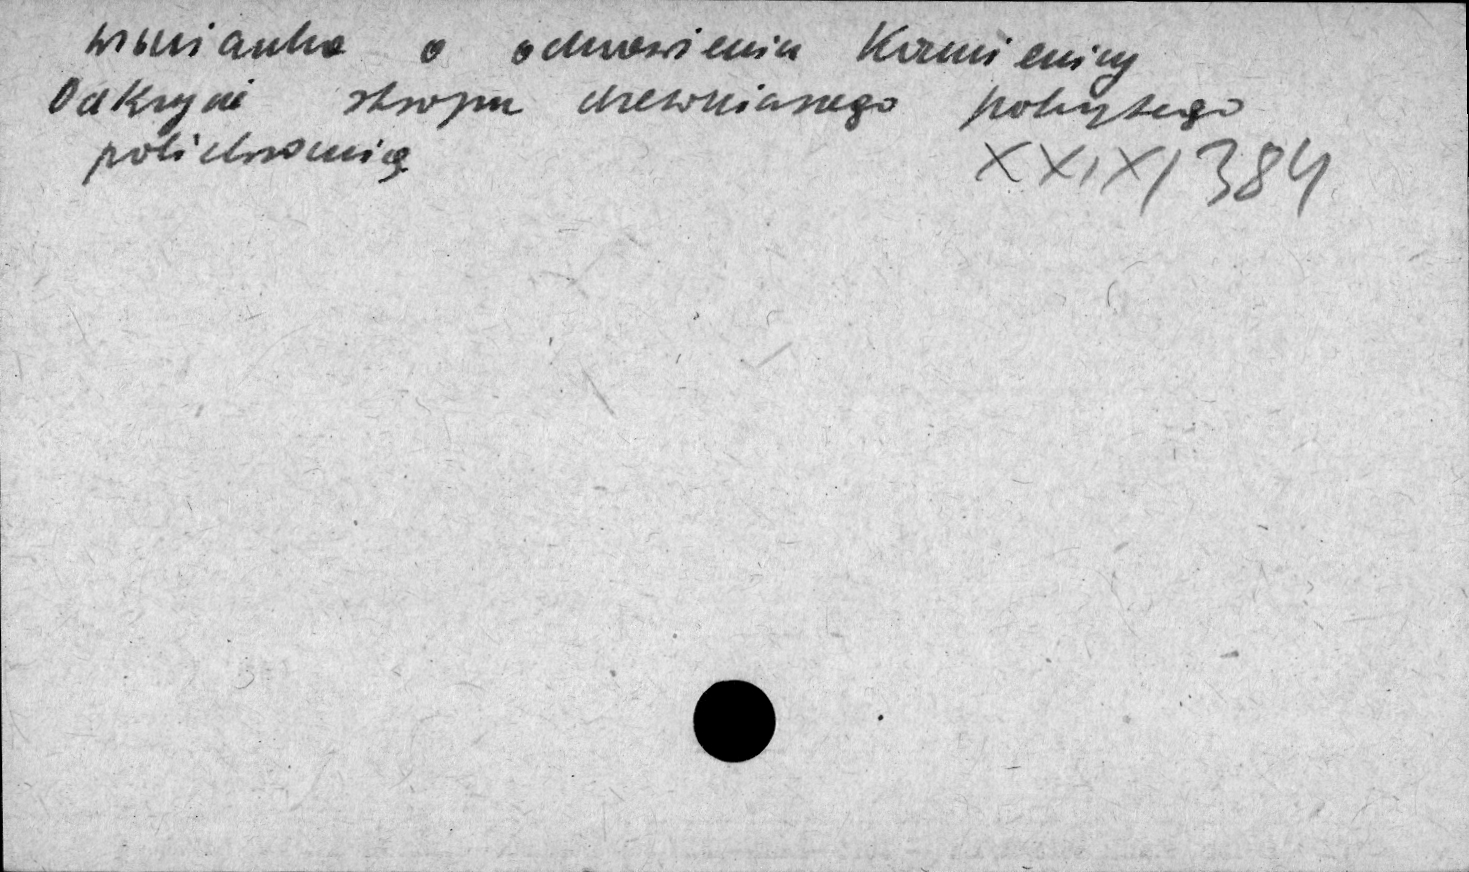 wzmianka o odnowieniu Kamienicy
Odkrycie stropu drewnianego pokrytego
polichromią
XXIX/384